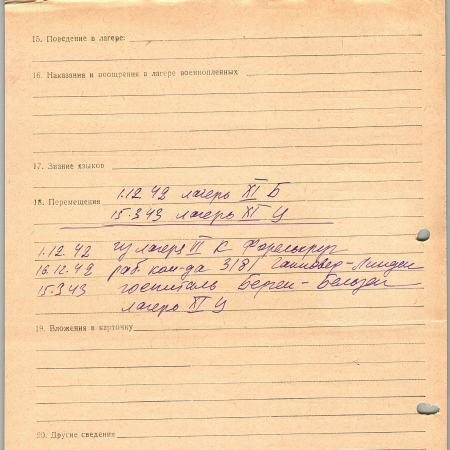 15. Поведение в лагере
16. Наказания и поощрения в лагере военнопленных
17. Знание языков
18. Перемещения 1.12.42 лагерь XI Б
15.3.43 лагерь XI Ц
1.12.42 из лагеря VI К Форелькруг
16.12.42 раб. ком-да 3181 Ганновер-Линден
15.3.43 госпиталь Берген-Бельзен
лагерь XI Ц
19. Вложения в карточку
20. Другие сведения